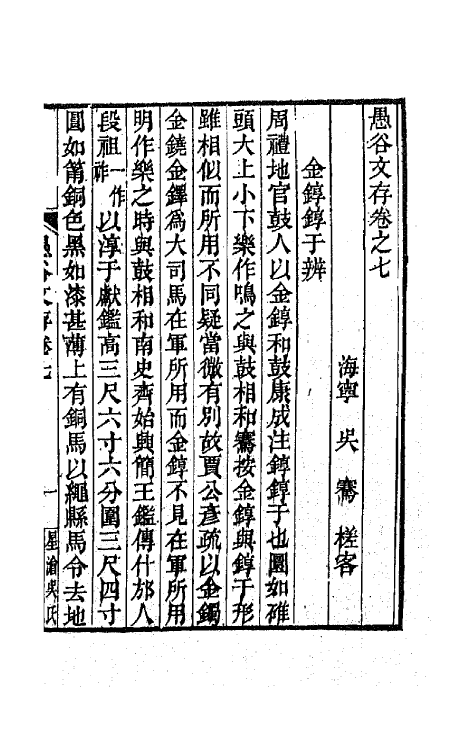 愚谷文存卷之七
海寧 吳 騫 槎客
金錞錞于辨
周禮地官鼓人以金錞和鼓康成注錞錞于也圜如碓
頭大上小下樂作鳴之與鼓相和騫按金錞與錞于形
雖相似而所用不同疑當微有別故賈公彥疏以金鐲
金鐃金鐸爲大司馬在軍所用而金錞不見在軍所用
明作樂之時與鼓相和南史齊始興簡王鑑傳什邡人
段祖一作祚以淳于獻鑑高三尺六寸六分圍三尺四寸
圓如筩銅色黑如漆甚薄上有銅馬以繩縣馬令去地
愚谷文存卷七
一
星滄吳氏